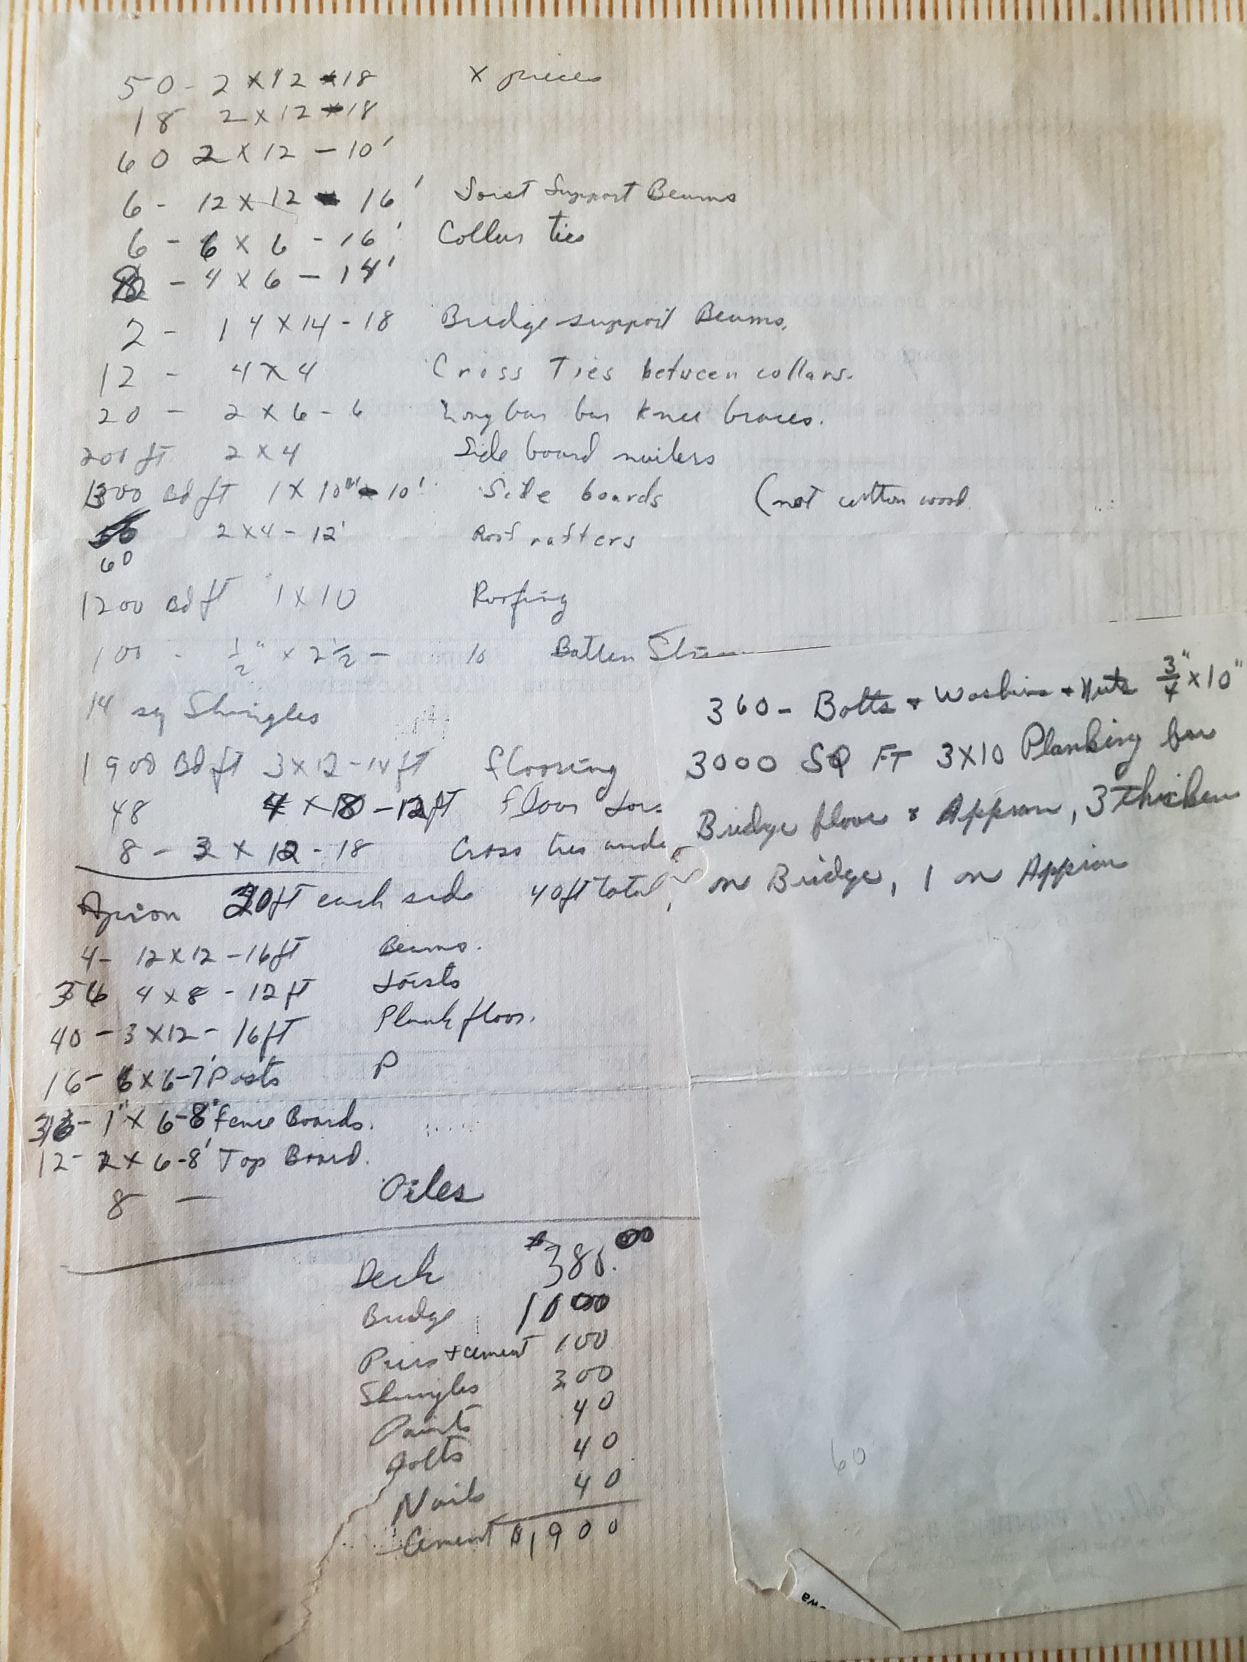 50 - 2 x 12 - 18 x pieces
18 2 x 12 - 18
60 2 x 12 - 10'
6 - 12 x 12 - 16' Joist Support Beams
6 - 6 x 6 - 16' Collar ties
- 4 x 6 - 14'
2 - 14 x 14 - 18 Bridge support Beams.
12 - 4 x 4 Cross Ties between collars.
20 - 2 x 6 - 6 Knee braces.
200 ft 2 x 4 Side board nailers
1300 Bd ft 1 x 10" - 10' Side boards (not cotton wood
60 2 x 4 - 12' Roof rafters
1200 Bd ft 1 x 10 Roofing
100 - 1/2" x 2 1/2 - 10 Batten
14 sq Shingles
1900 Bd ft 3 x 12 - 14 ft flooring
48 4 x 8 - 12 ft floor
8 - 3 x 12 - 18 Cross ties
Apron 20 ft each side 40 ft total
4 - 12 x 12 - 16 ft Beams.
36 4 x 8 - 12 ft Joists
40 - 3 x 12 - 16 ft Plank floor.
16 - 6 x 6 - 7' Posts P
36 - 1" x 6 - 8' Fence Boards.
12 - 2 x 6 - 8' Top Board.
8 - Piles
Deck $380.00
Bridge 1000
Piers + cement 100
Shingles 300
Paints 40
Bolts 40
Nails 40
Cement $1,900
360 - Bolts + Washers + Nuts 3/4" x 10"
3000 SQ FT 3X10 Planking for
Bridge floor & Appron, 3 thicken
on Bridge, 1 on Appron
60